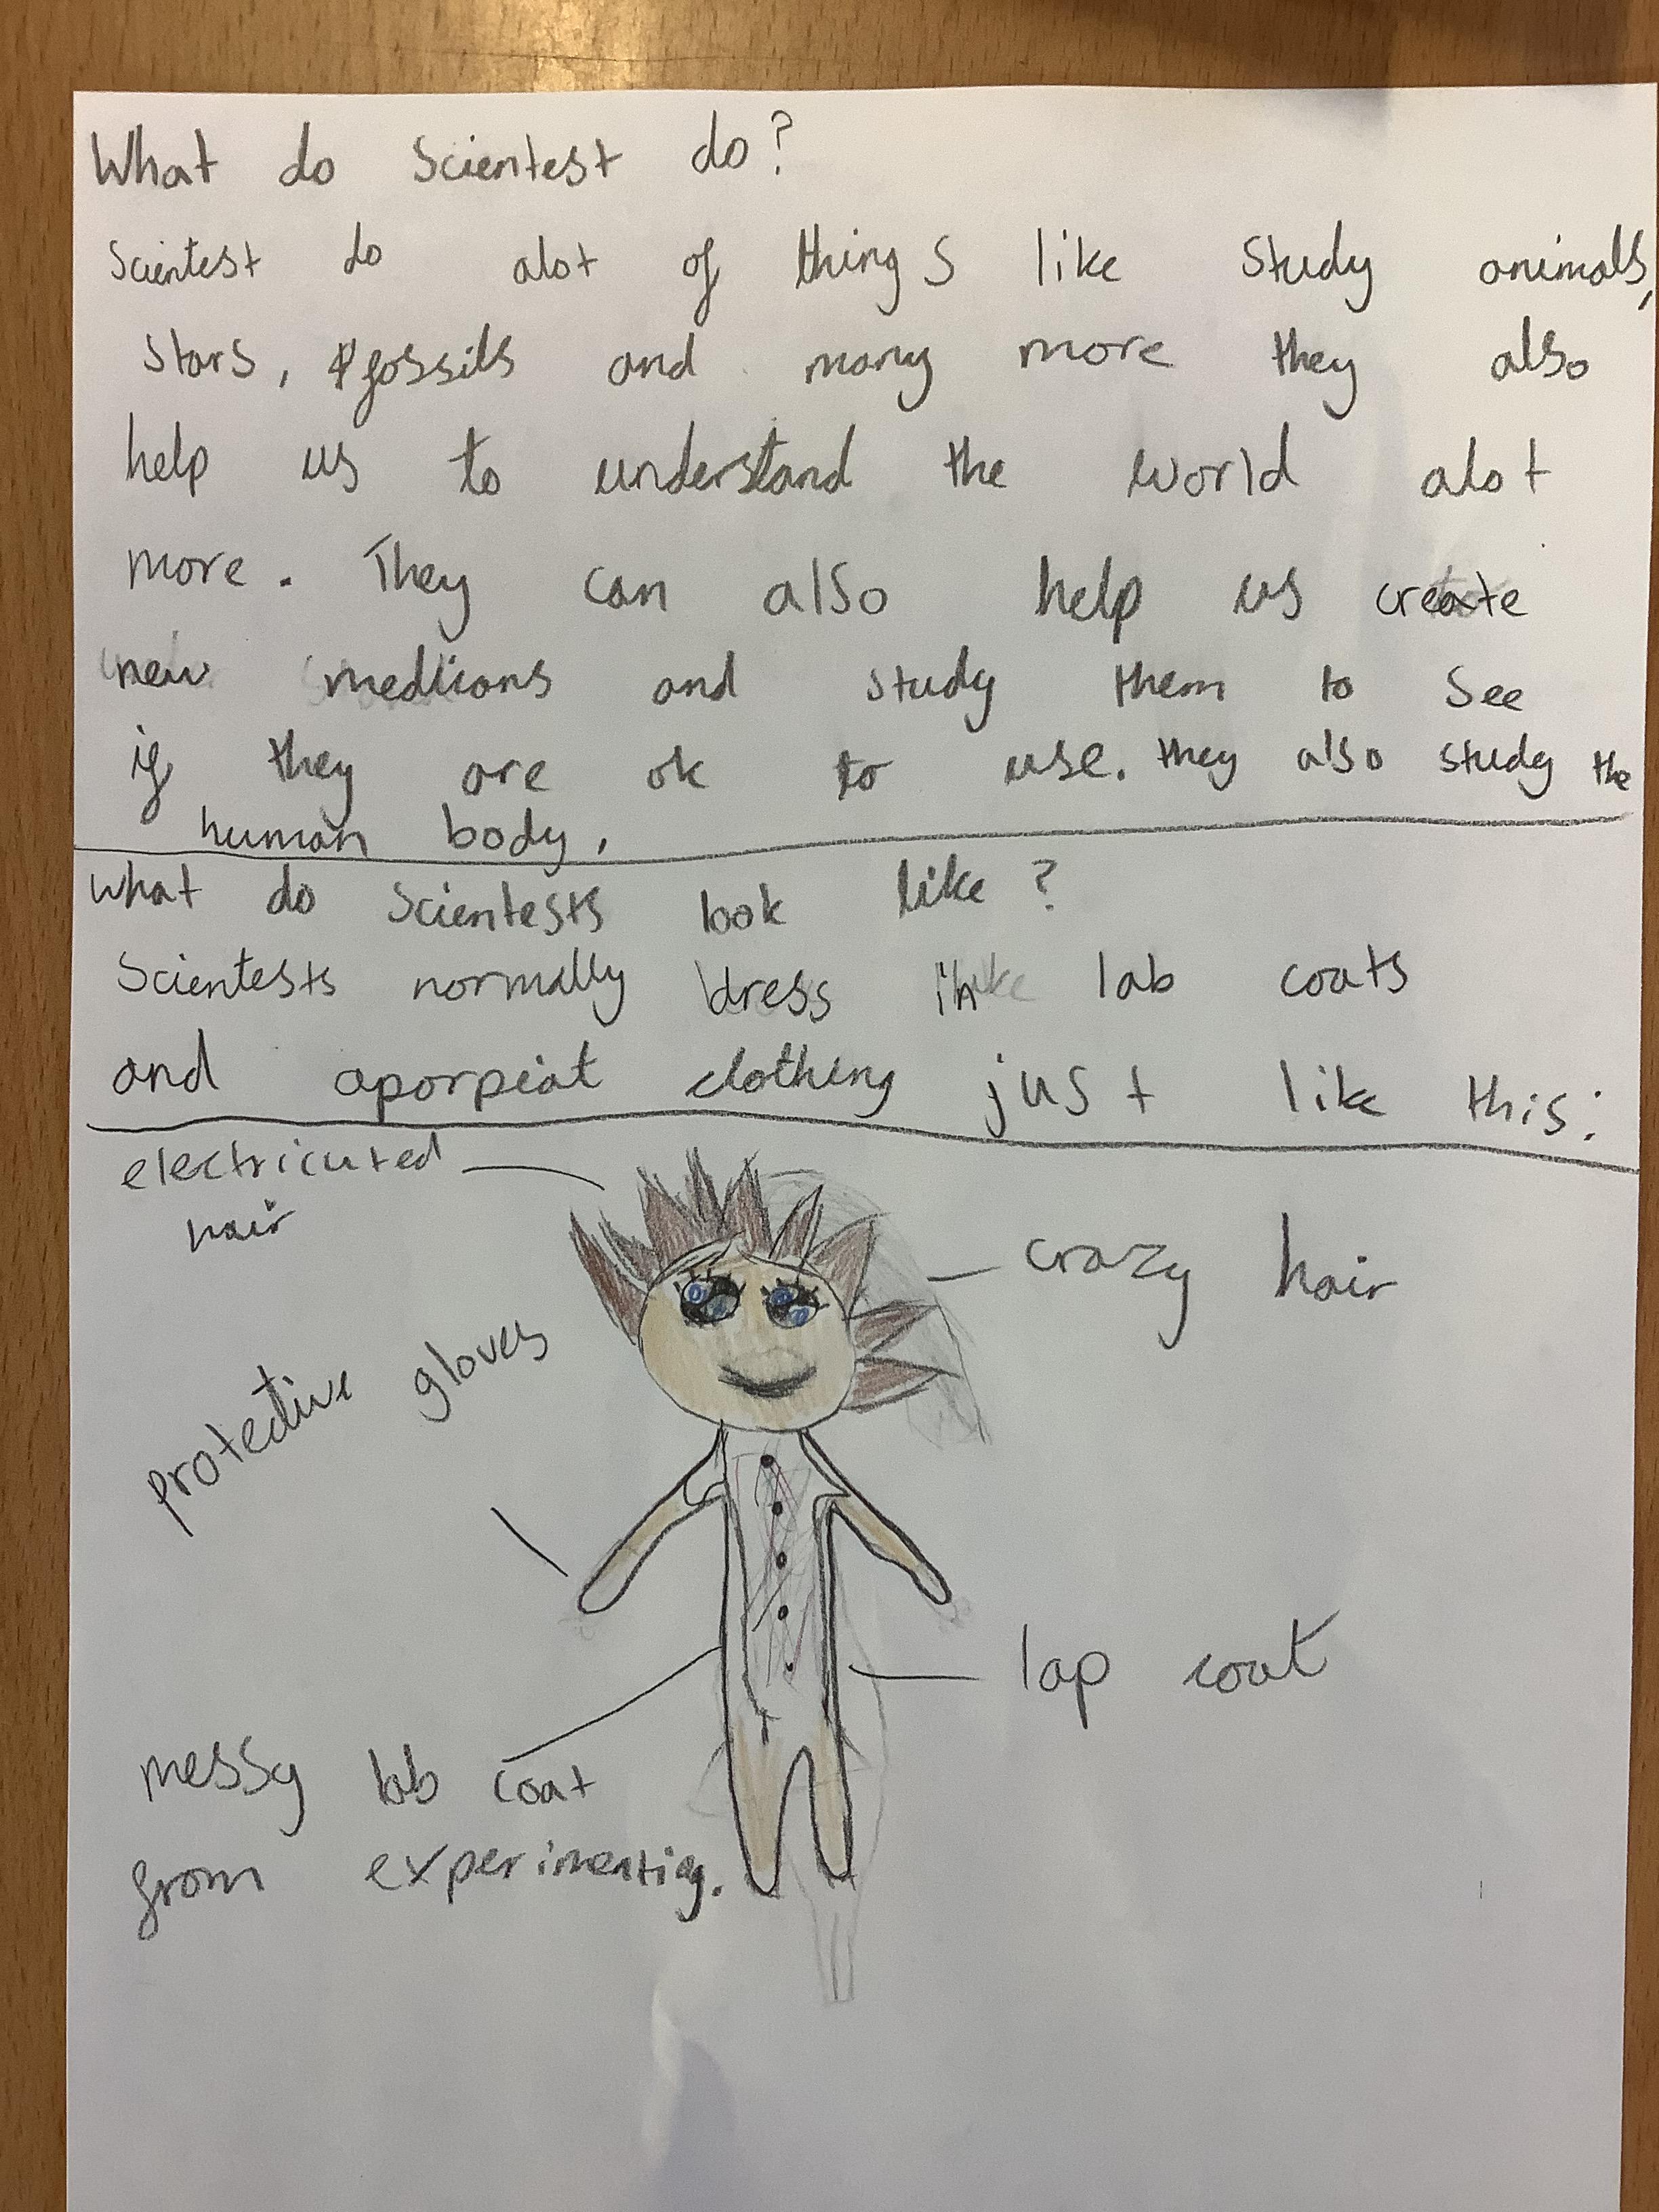 What do Scientest do?
Scientest do alot of things like study animals,
stars, fossils and many more they also
help us to understand the world alot
more. They can also help us create
new medicans and study them to see
if they are ok to use. they also study the
human body.
What do Scientests look like?
Scientests normally dress in lab coats
and aporpiat clothing just like this:
electricuted
hair
crazy hair
protective gloves
lap coat
messy lab coat
from experimentig.